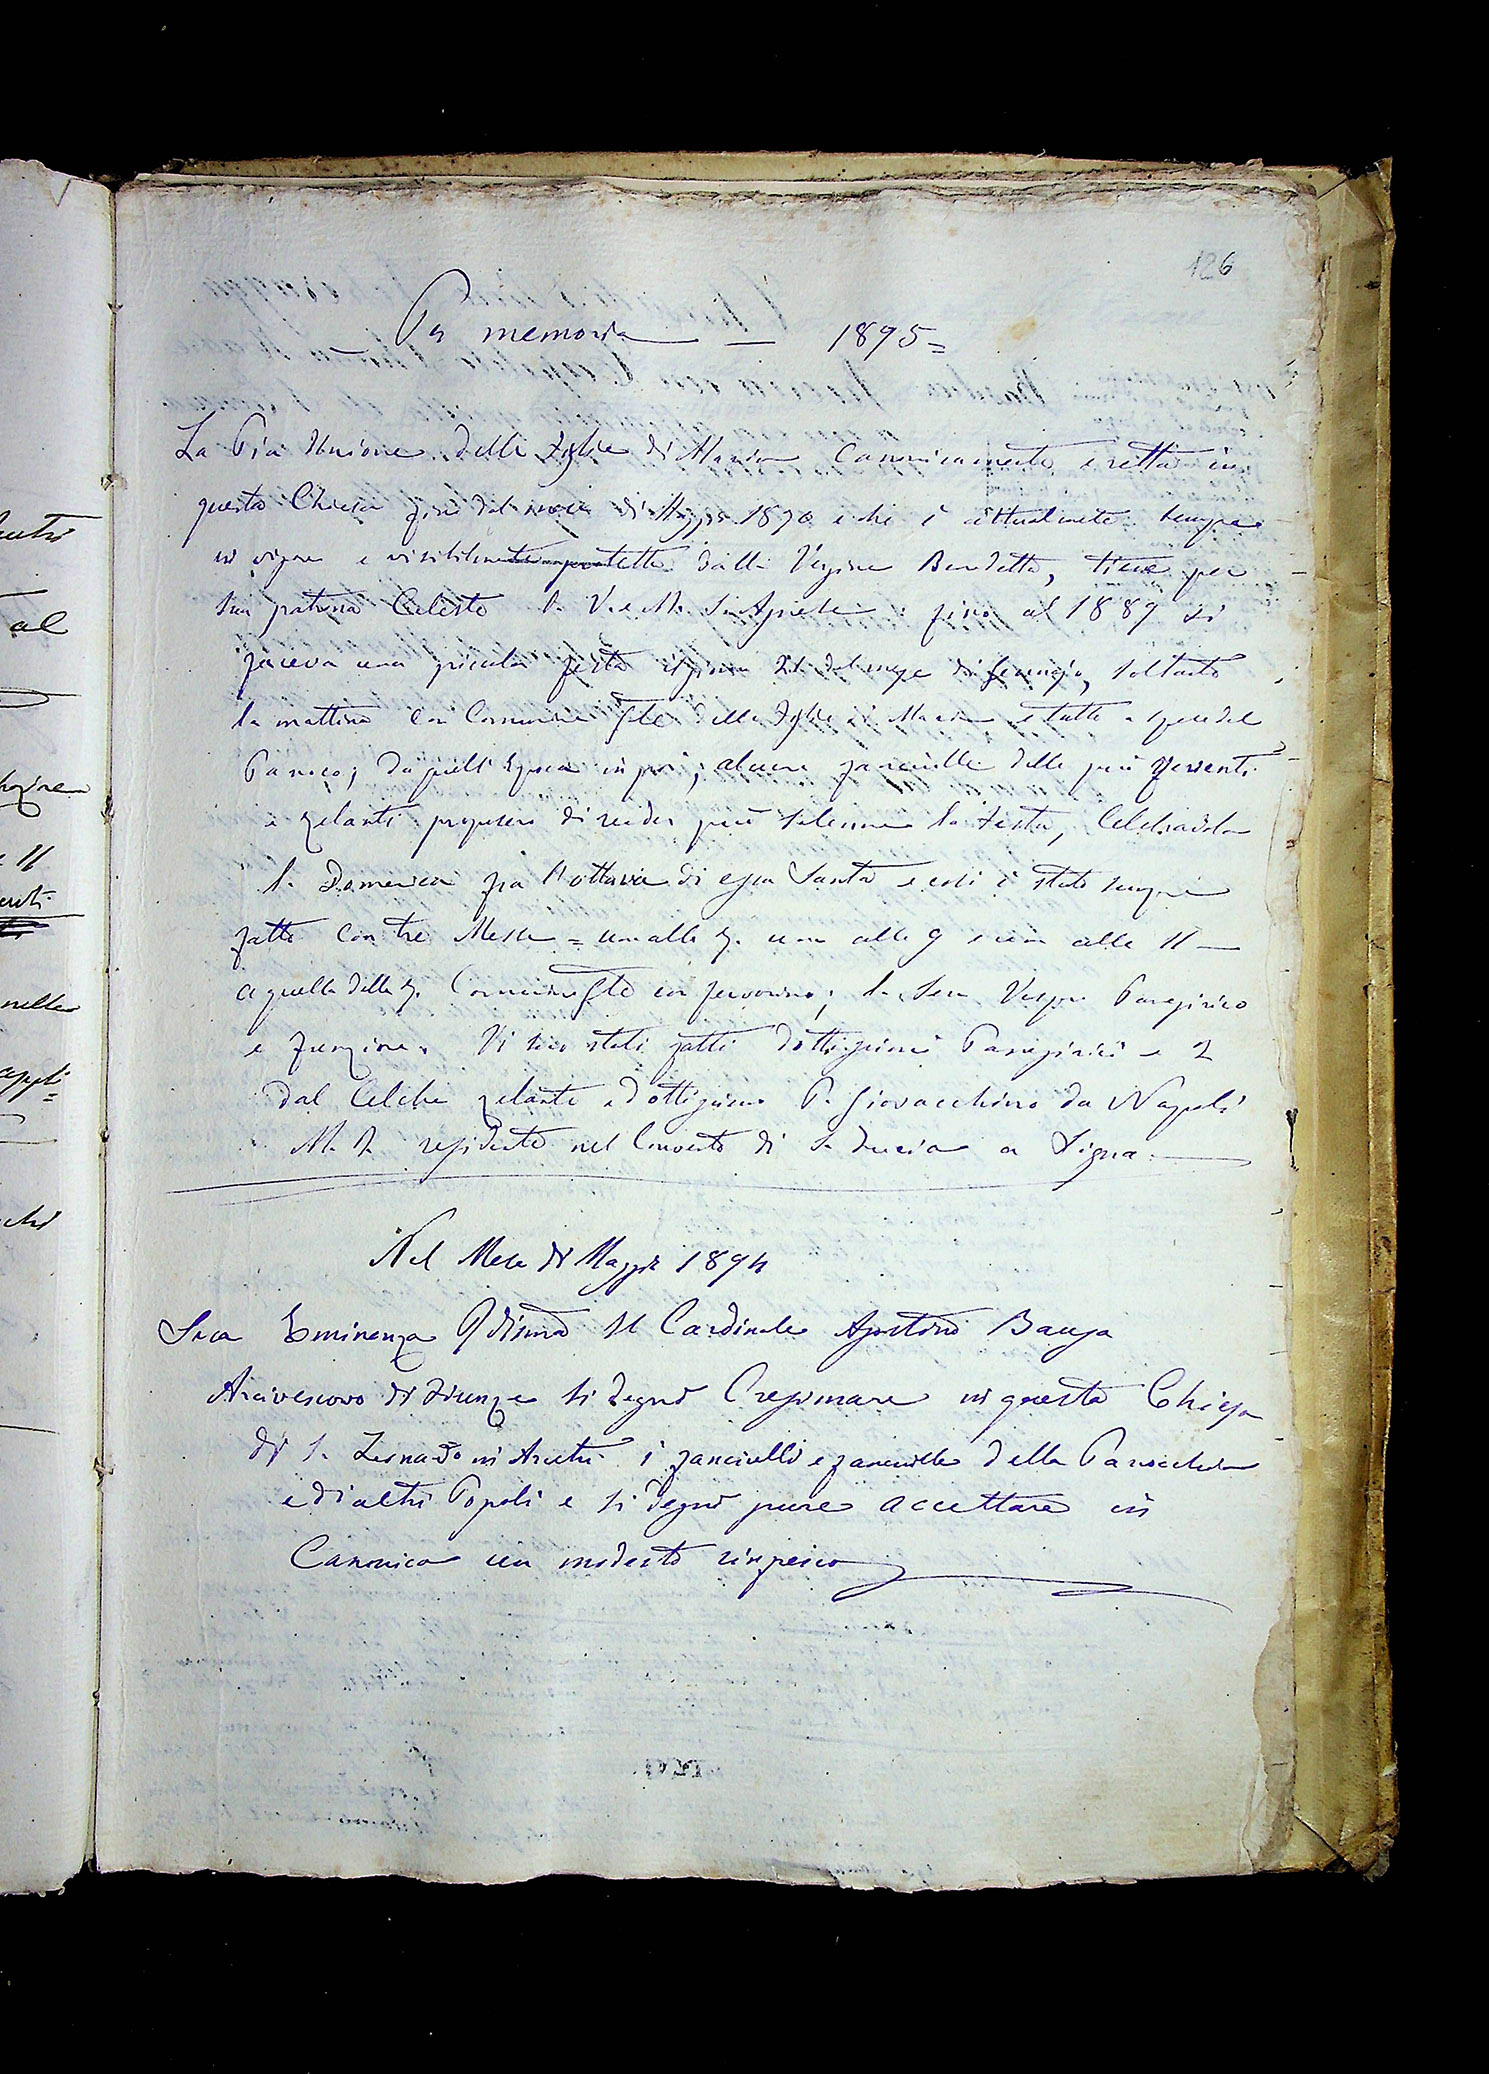 126
Per memoria — 1895=
La Pia Unione delle Figlie di Maria Canonicamente eretta in
questa Chiesa fino dal mese di Maggio 1890 e che è attualmente sempre
in vigore e visibilmente protetta dalla Vergine Benedetta, tiene per
sua patrona Celeste la V. e M. S. Agnese; fino al 1889 si
faceva una piccola festa il giorno 21 del mese di gennajo, soltanto
la mattina con Comunione Gle delle Figlie di Maria e tutto a spese del
Paroco; da quell'Epoca in poi, alcune fanciulle delle più ferventi
e zelanti proposero di render più solenne la festa, Celebrandola
la Domenica fra l'ottava di essa Santa e così è stato sempre
fatto con tre Messe = una alle 7. una alle 9 e una alle 11 —
a quella delle 7. Comunione Gle con fervorino; la sera Vespro Panegirico
e funzione. Vi sono stati fatti dottissimi Panegirici e 2
dal Celebre zelante e dottissimo P. Giovacchino da Napoli
M. O. residente nel Convento di S. Lucia a Signa —
Nel Mese di Maggio 1894
Sua Eminenza Rdisma Il Cardinale Agostino Bausa
Arcivescovo di Firenze si degnò Cresimare in questa Chiesa
di S. Leonardo in Arcetri i fanciulli e fanciulle della Parocchia
e di altri Popoli e si degnò pure accettare in
Canonica un modesto rinfresco